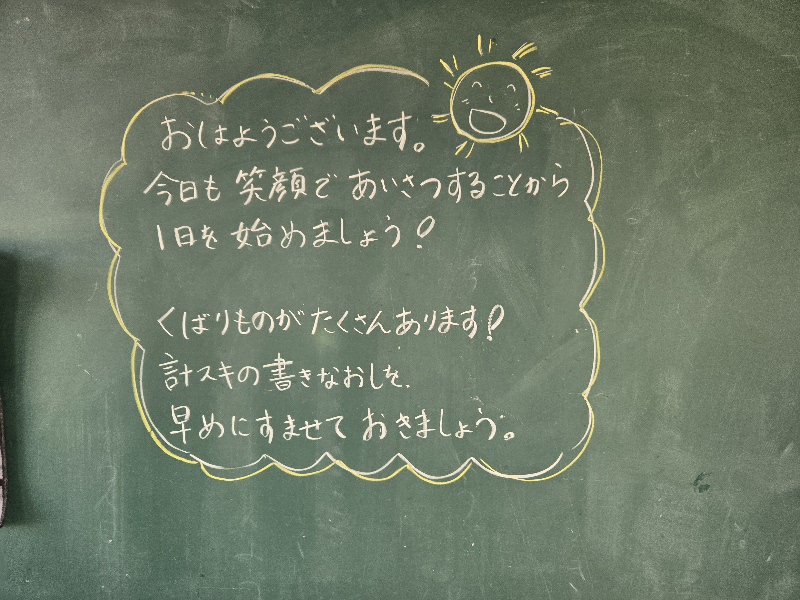 おはようございます。
今日も 笑顔で あいさつすることから
1日を 始めましょう!
くばりものが たくさんあります!
計スキの 書きなおしを、
早めにすませて おきましょう。